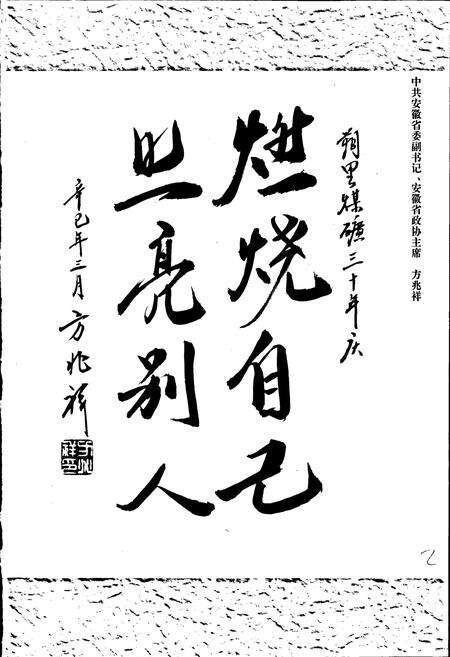 中共安徽省委副书记、安徽省政协主席　方兆祥
朔里煤矿三十年庆
燃烧自己
照亮别人
辛巳年三月方兆祥